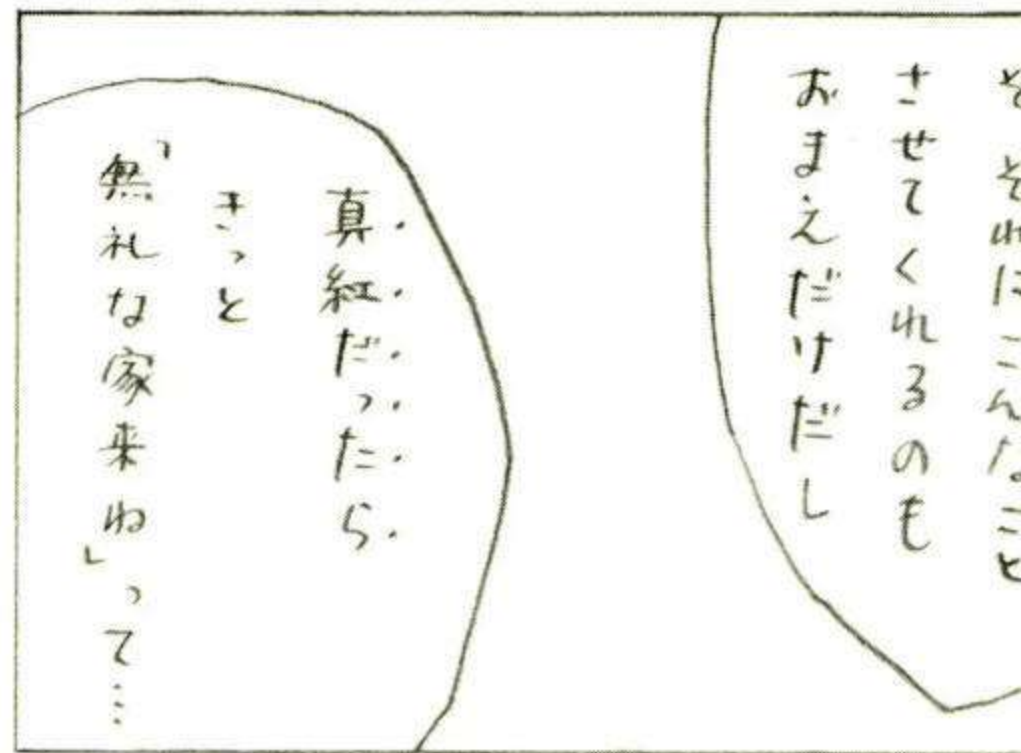 そ それにこんなこと
させてくれるのも
おまえだけだし
真紅だったら
きっと
「無礼な家来ね」って…